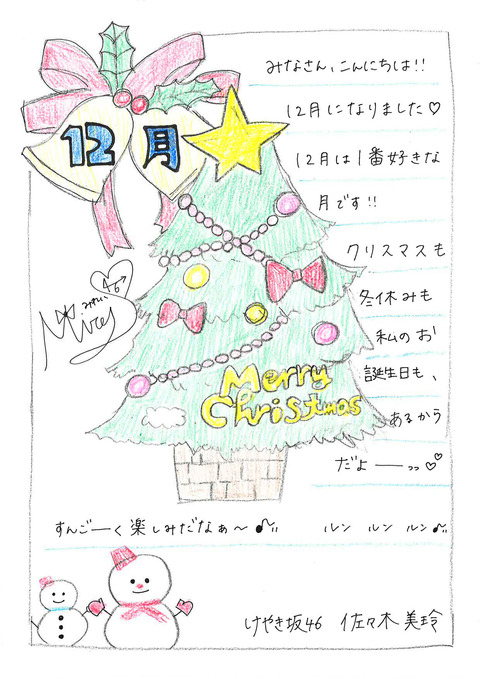 12月
みなさん、こんにちは!!
12月になりました♡
12月は1番好きな
月です!!
クリスマスも
冬休みも
私のお
誕生日も、
あるから
だよーっっ♡
Merry
Christmas
すんごーく楽しみだなぁ〜♪ ルン ルン ルン♪
けやき坂46 佐々木美玲